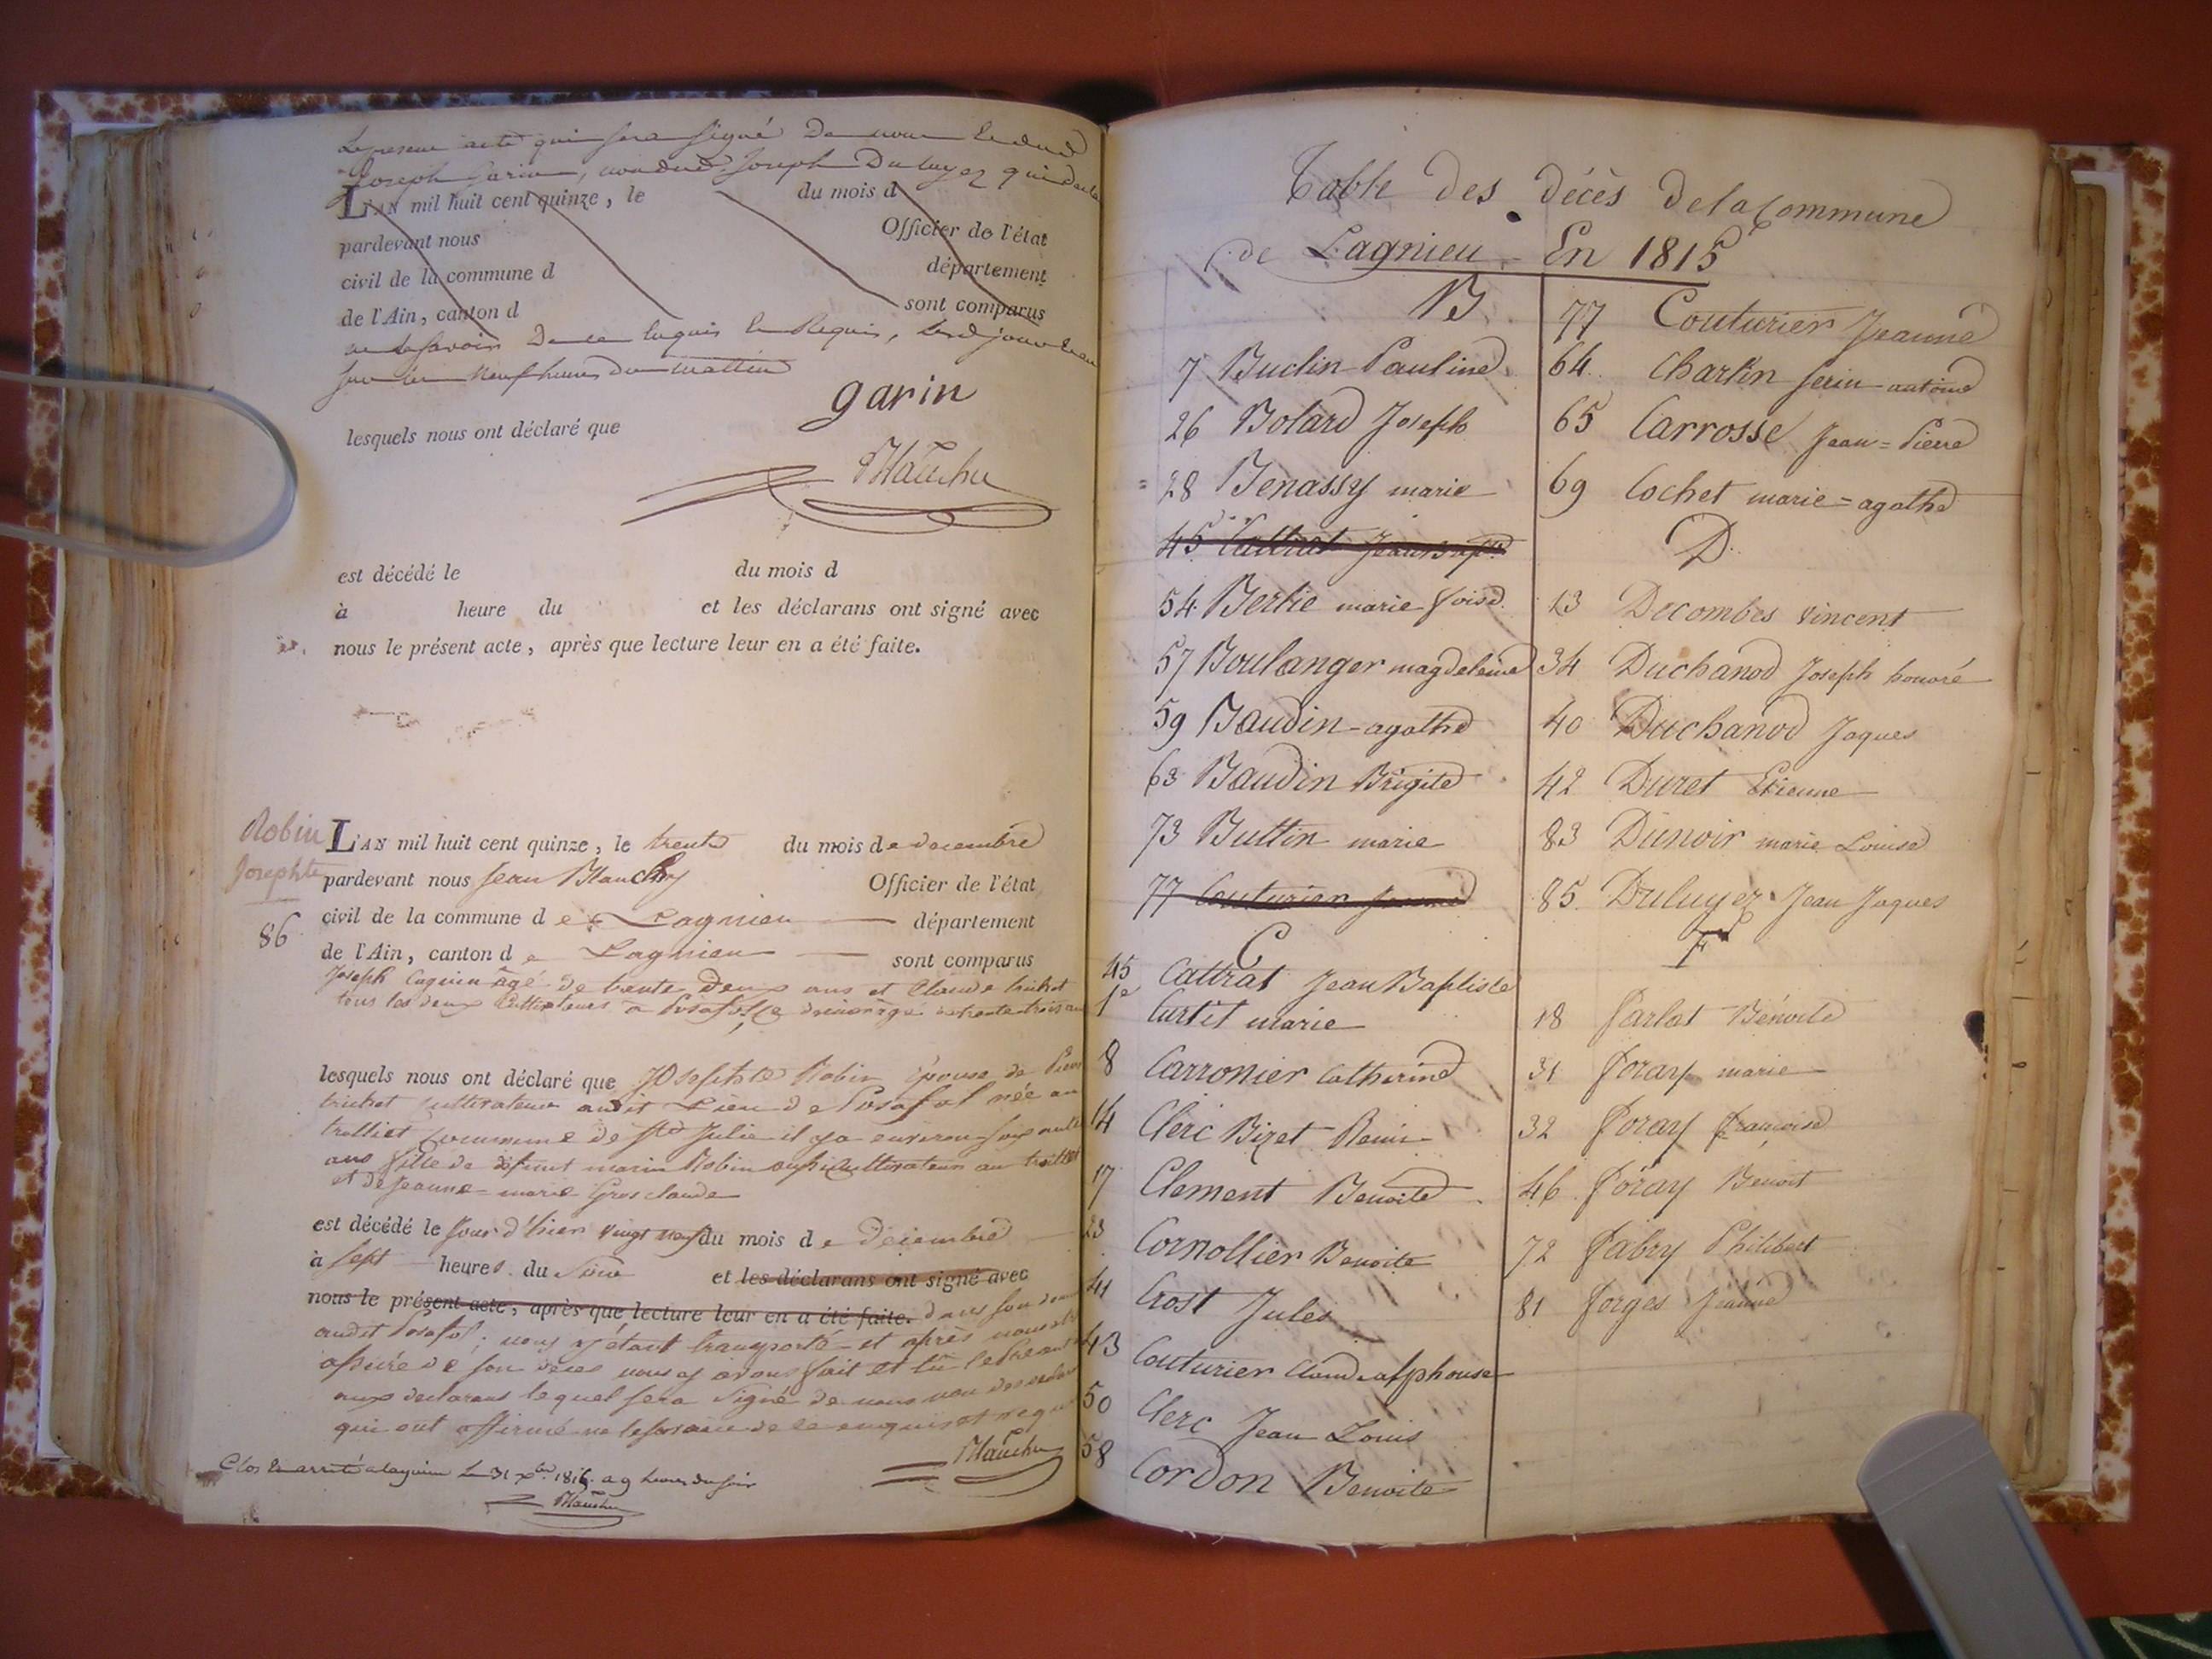 Le présent acte qui sera signé De nous
Joseph Garin, non dud. Joseph Duluyez qui
L'AN mil huit cent quinze, le du mois d
pardevant nous Officier de l'état
civil de la commune d département
de l'Ain, canton d sont comparus
ne le savoir De ce Enquis Et Requis,
sur les Neuf heures du mattin
garin
lesquels nous ont déclaré que
Blauchy
est décédé le du mois d
à heure du et les déclarans ont signé avec
nous le présent acte, après que lecture leur en a été faite.
Robin
Josephte
86
L'AN mil huit cent quinze, le trente du mois de decembre
pardevant nous Jean Blauchy Officier de l'état
civil de la commune de Lagnieu département
de l'Ain, canton de Lagnieu sont comparus
Joseph âgé de trente Deux ans et Claude
tous les deux Cultivateurs à Posafol
lesquels nous ont déclaré que Josephte Robin épouse de
cultivateur audit Lieu de Posafol née au
trolliet commune de Ste Julie il y a environ
ans fille de défunt marin Robin aussi Cultivateur au
et de Jeanne-marie Grosclaude
est décédé le Jour d'hier vingt neuf du mois de Décembre
à sept heures du Soire et les déclarans ont signé avec
nous le présent acte, après que lecture leur en a été faite. dans son
audit Posafol; nous y étant transporté et après nous
assuré de son décès nous y avons fait et lû le
aux declarans lequel sera signé de nous non des
qui ont affirmé ne le savoir de ce enquis et
Blauchy
Clos Et arrêté a lagnieu Le 31 xbre 1815 a 9 heures du soir
Blauchy
Table des décès de la Commune
de Lagnieu En 1815
B
7 Buclin Pauline
26 Bolard Joseph
28 Benassy marie
45 Cattrat Jean Bapte
54 Berlie marie foise
57 Boulanger magdeleine
59 Baudin-agathe
63 Baudin Brigite
73 Buttin marie
77 Couturier Jeanne
C
45 Cattrat Jean Baptiste
1e Curtit marie
8 Carronier Catherine
14 Clerc Bizet Remi
17 Clement Benoite
23 Cornollier Benoite
41 Crost Jules
43 Couturier Claude alphonse
50 Clerc Jean Louis
58 Cordon Benoite
77 Couturier Jeanne
64 Charlin antoine
65 Carrosse Jean=Pierre
69 Cochet marie=agathe
D
13 Decombes vincent
34 Duchanod Joseph honoré
40 Duchanod Jaques
42 Duret Etienne
83 Dunoir marie Louise
85 Duluyez Jean Jaques
F
18 Farlat Benoite
31 foray marie
32 foray françoise
46 foray Benoit
72 fabry Philibert
81 forges Jeanne